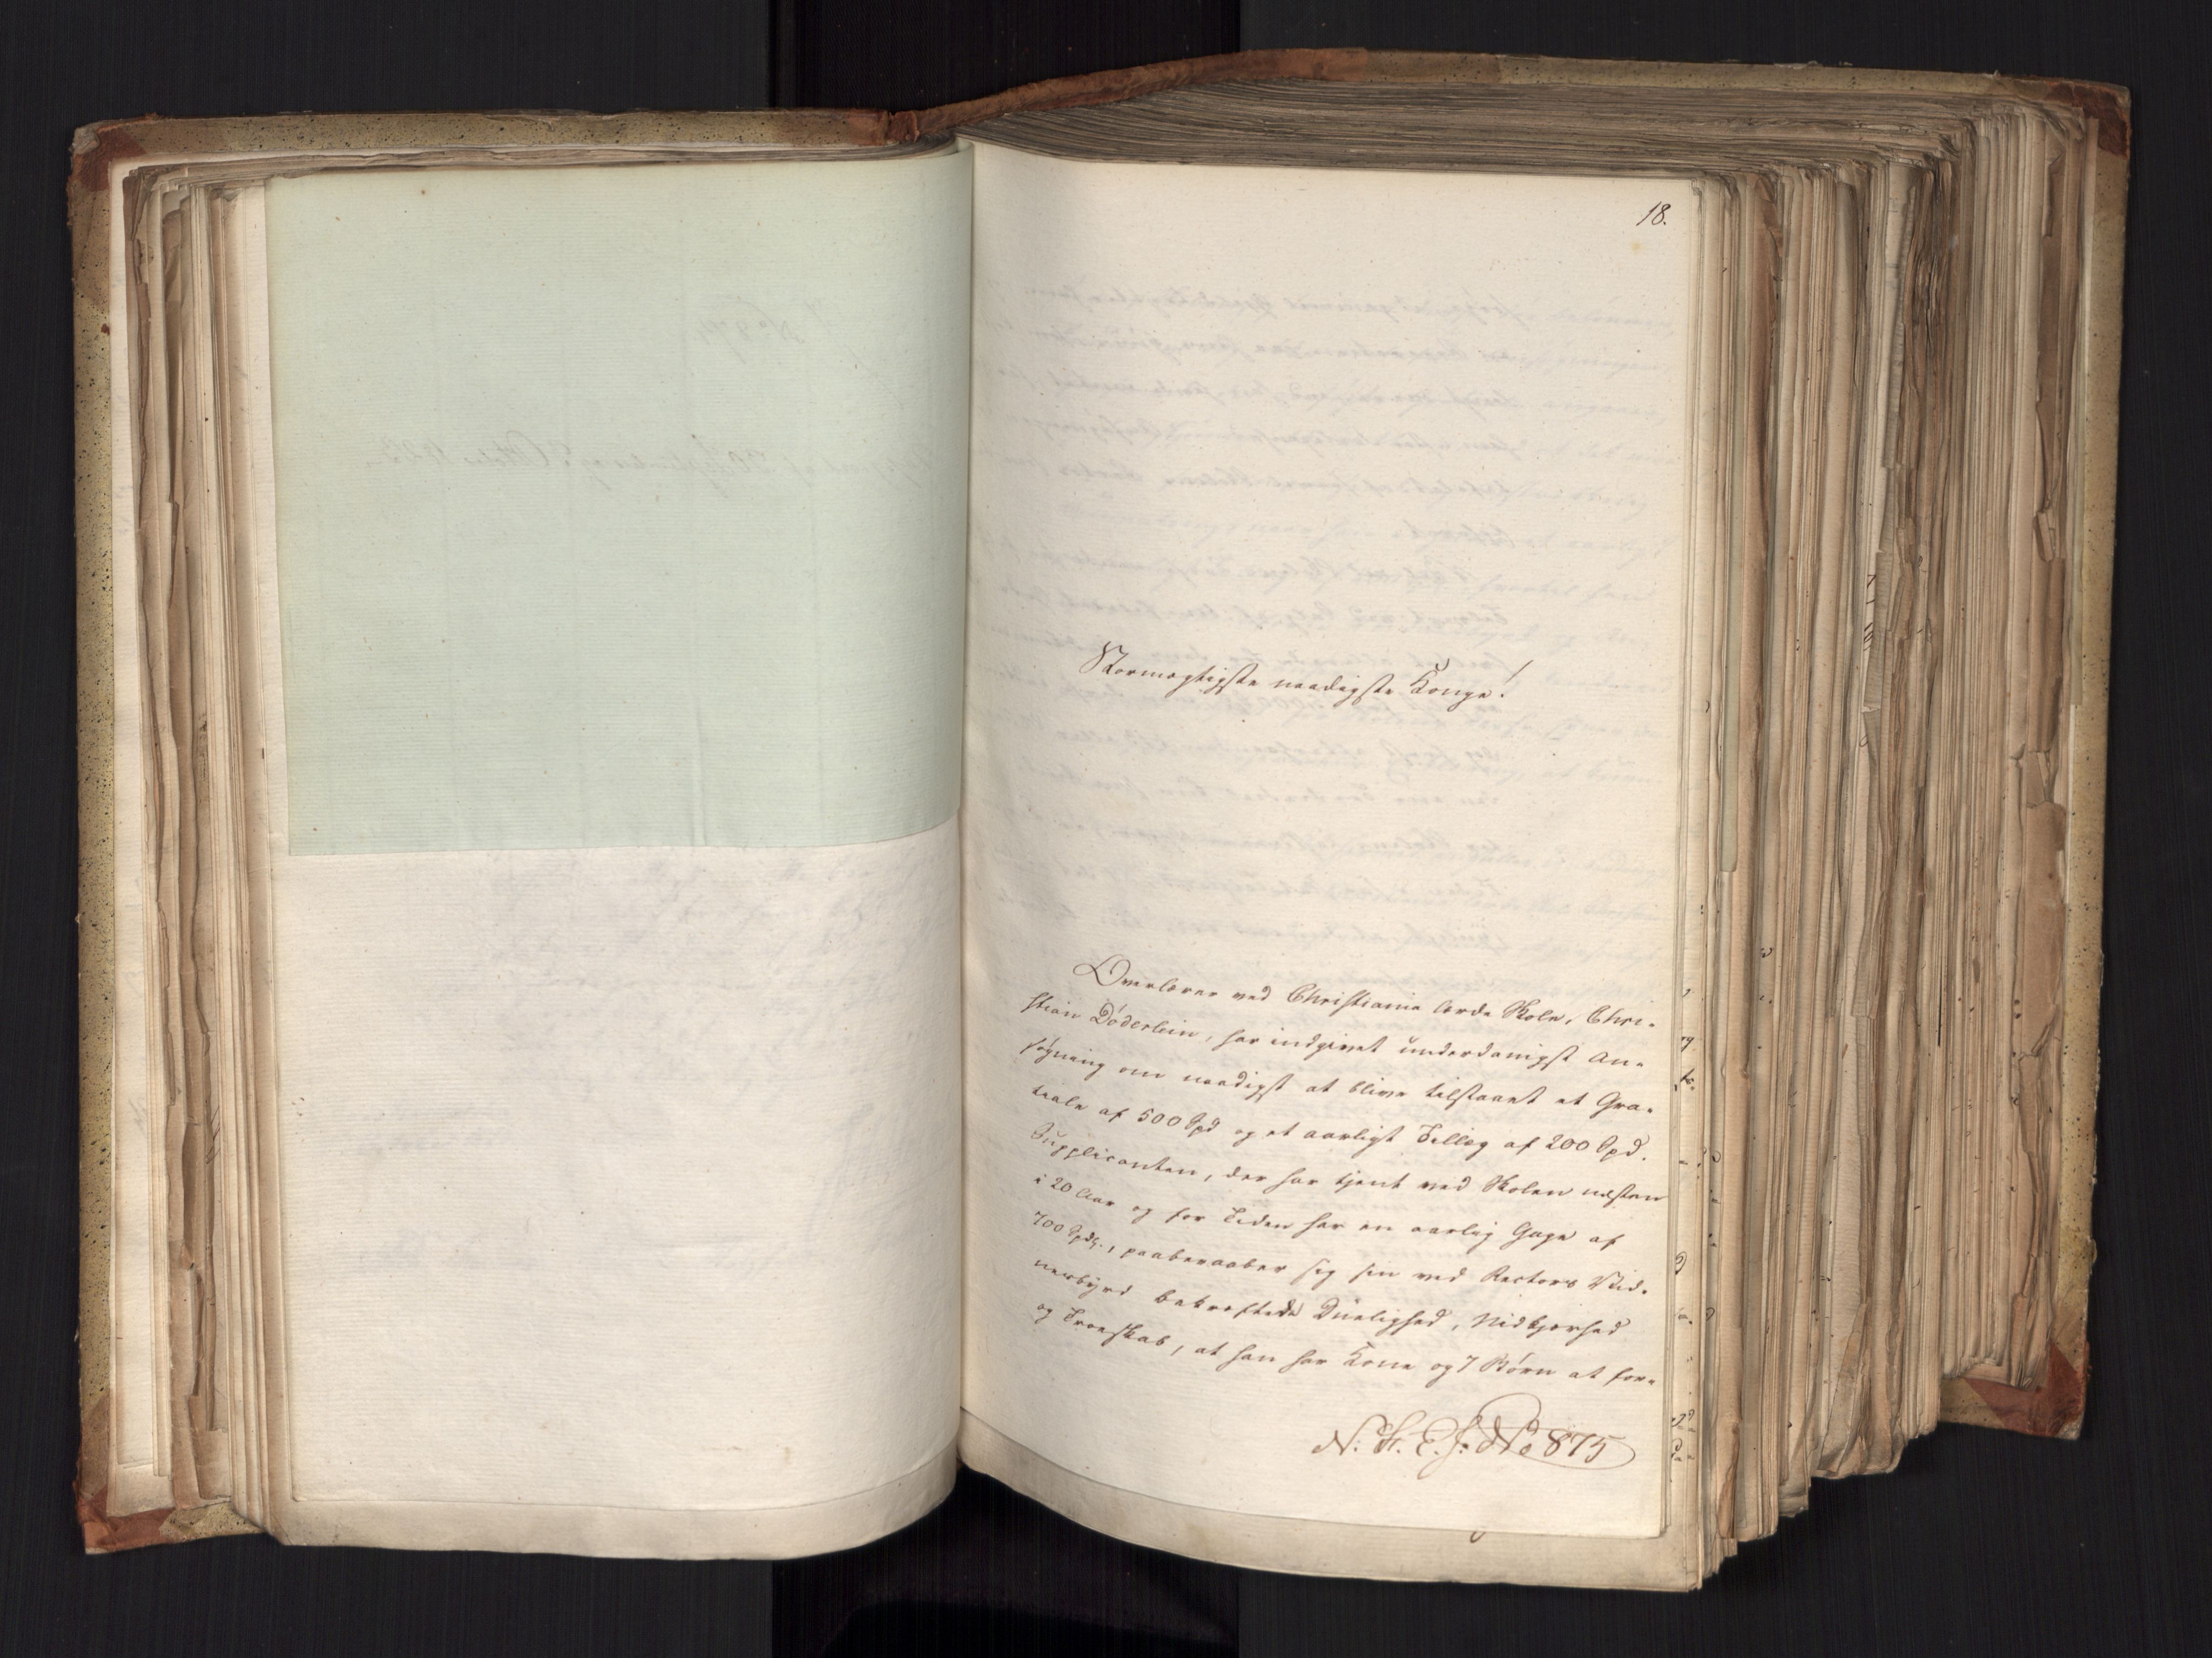 18.
Stormægtigste naadigste Konge!
Overlærer ved Christiania lærde Skole, Chri-
stian Döderlein, har indgivet underdanigst An-
søgning om naadigst at blive tilstaaet et Gra-
tiale af 500 Spd og et aarligt Tillæg af 200 Spd.
Supplicanten, der har tjent ved Skolen næsten
i 20 Aar og for Tiden har en aarlig Gage af
700 Spd., paaberaaber sig sin ved Rectors Vid-
nesbyrd bekræftede Duelighed, Nidkjærhed
og Troeskab, at han har Kone og 7 Børn at for-
N: St. E. J: No 875